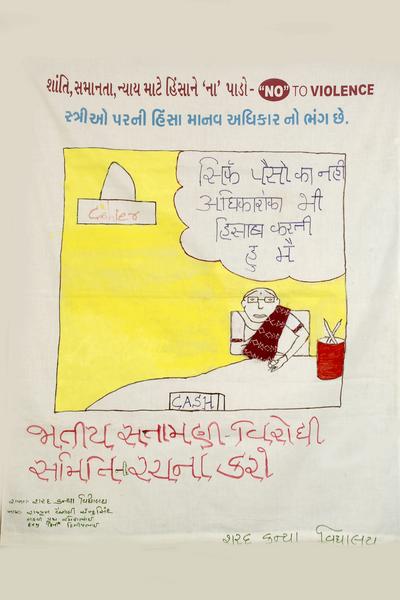 શાંતિ, સમાનતા, ન્યાય માટે હિંસાને 'ના' પાડો - "NO" TO VIOLENCE
સ્ત્રીઓ પરની હિંસા માનવ અધિકાર નો ભંગ છે.
सिर्फ पैसो का नही
अधिकारोका भी
हिसाब करती
हु मै
Cashier
CASH
જાતીય સતામણી-વિરોધી
સમિતિની રચના કરો
શરદ કન્યા વિદ્યાલય
શરદ કન્યા વિદ્યાલય